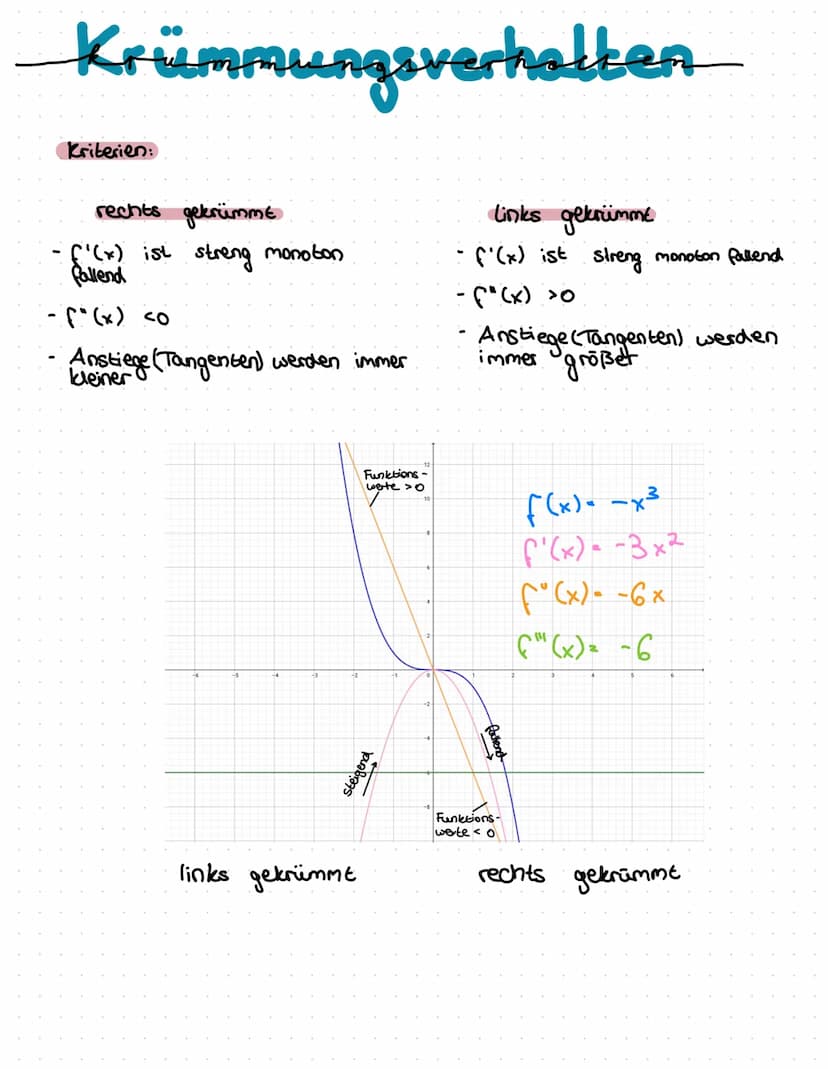 Krümmungsverhalten
Kriterien:
rechts gekrümmt
- f'(x) ist streng monoton
fallend
- f"(x) <0
- Anstiege (Tangenten) werden immer
kleiner
links gekrümmt
- f'(x) ist streng monoton fallend
- f"(x) >0
- Anstiege (Tangenten) werden
immer größer
Funktions-
werte >0
f(x) = -x³
f'(x) = -3x²
f"(x) = -6x
f'''(x) = -6
12
10
8
6
4
2
-6 -5 -4 -3 -2 -1 0 1 2 3 4 5 6
-2
-4
-6
-8
steigend
fallend
Funktions-
werte < 0
links gekrümmt
rechts gekrümmt